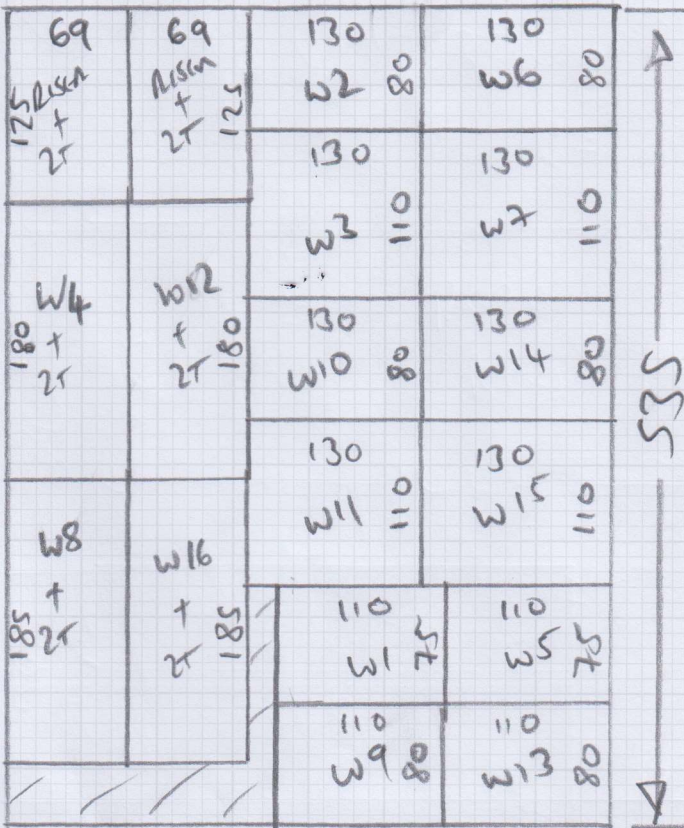 69
RISER
+
2T
125
69
RISER
+
2T
125
130
W2
80
130
W6
80
130
W3
110
130
W7
110
W4
+
2T
180
W12
+
2T
180
130
W10
80
130
W14
80
130
W11
110
130
W15
110
W8
+
2T
185
W16
+
2T
185
110
W1
75
110
W5
75
110
W9
80
110
W13
80
535